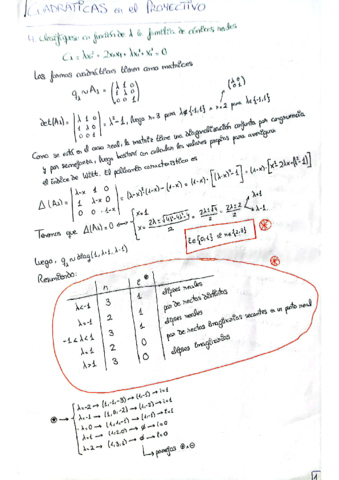 CUADRÁTICAS en el PROYECTIVO
4. Clasifíquese en función de λ la familia de cónicas reales
C_λ = λx₀² + 2x₀x₁ + λx₁² + x₂² = 0
Las formas cuadráticas tienen como matrices
q_λ ~ A_λ = (λ 1 0 / 1 λ 0 / 0 0 1)
det(A_λ) = |λ 1 0 / 1 λ 0 / 0 0 1| = λ² - 1, luego n = 3 para λ∉{-1,1} n = 2 para λ∈{-1,1}
Como se está en el caso real, la matriz tiene una diagonalización conjunta por congruencia
y por semejanza, luego bastará con calcular los valores propios para averiguar
el índice de Witt. El polinomio característico es
Δ(A_λ) = |λ-x 1 0 / 1 λ-x 0 / 0 0 1-x| = (λ-x)²(1-x) - (1-x) = (1-x)·[(λ-x)²-1] = (1-x)·[x²-2λx+λ²-1]
Tenemos que Δ(A_λ) = 0
x = 1
λ+1
λ-1
Luego, q_λ ~ diag(1, λ+1, λ-1)
Resumiendo:
n i
λ<-1 3 1 elipses reales
λ=-1 2 1 par de rectas distintas
-1<λ<1 3 1 elipses reales
λ=1 2 0 par de rectas imaginarias secantes en un punto real
λ>1 3 0 elipses imaginarias
λ=-2 → (1,-1,-3) → (1,-1) → i=1
λ=-1 → (1,0,-2) → (1,-2) → i=1
λ=0 → (1,1,-1) → (1,-1) → i=1
λ=1 → (1,2,0) → ∅ → i=0
λ=2 → (1,3,1) → ∅ → i=0
parejas ⊕,⊖
1